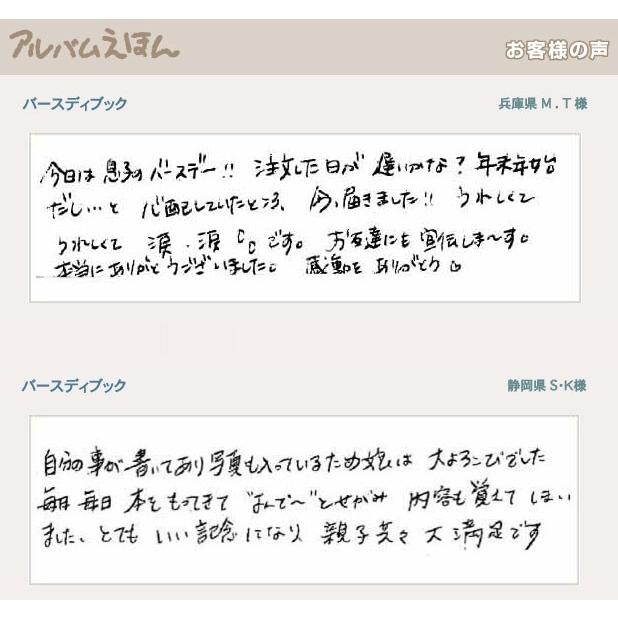 アルバムえほん
お客様の声
バースディブック
兵庫県 M．T 様
今日は 息子の バースデー!! 注文した日が 遅いかな？ 年末年始
だし…と 心配していたところ、今、届きました!! うれしくて
うれしくて 涙・涙 です。 お友達にも 宣伝しま〜す。
本当に ありがとうございました。 感動を ありがとう
バースディブック
静岡県 S・K様
自分の事が 書いてあり 写真も入っているため 娘は 大よろこびでした
毎日 毎日 本を もってきて “よんで〜”とせがみ 内容も 覚えて しまい
ました、とても いい 記念になり 親子共々 大満足です